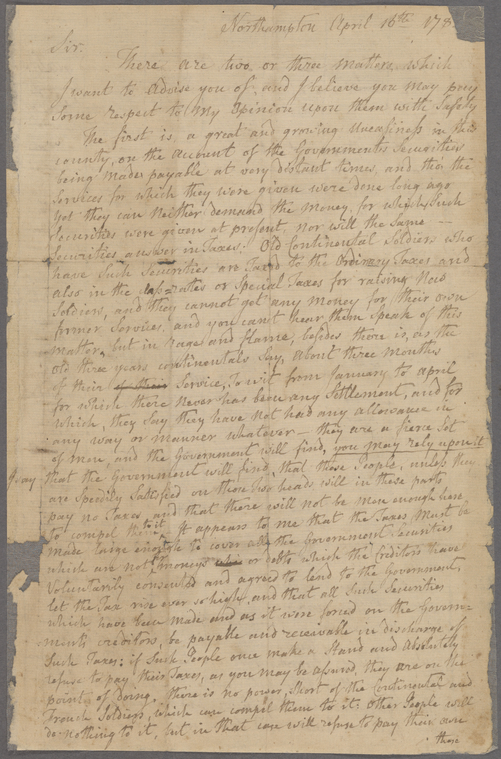 Northampton April 16th 178
Sir.
There are two or three matters which
I want to advise you of, and I believe you may pay
Some respect to My Opinion upon them with Safety
The first is a great and growing Uneasiness in this
county, on the account of the Governments Securities
being made payable at very distant times, and tho the
Services for which they were given were done long ago
yet they can Neither demand the Money, for which Such
Securities were given at present nor will the Same
Securities answer in Taxes: Old Continental Soldiers who
have Such Securities are Taxed to the Ordinary Taxes and
also in the or Special Taxes for raising New
Soldiers, and they cannot get any Money for their own
former Services, and you cant hear them Speak of this
matter, but in rage and flame, besides there is, as the
Old three years continentals Say, about three months
of their Service, to wit from January to April
for which there Never has been any Settlement, and for
which, they Say they have not had any allowance in
any way or manner whatever — they are a fierce Set
of men, and the Government will find, you may rely upon it
I say that the Government will find that those People, unless they
are Speedily Satisfied on those two heads will in these parts
pay no Taxes and that there will not be men enough here
to compel them to it. It appears to me that the Taxes Must be
made large enough to cover all the Government Securities
which are not for moneys or debts which the creditors have
Voluntarily consented and agreed to lend to the Government,
let the Tax rise ever so high, and that all Such Securities
which have been made and as it were forced on the Govern-
ments creditors, be payable and receivable in discharge of
Such Taxes: if Such People once make a Stand and Absolutely
refuse to pay their Taxes, as you may be assured, they are on the
point of doing, there is no power, Short of the Continental and
French Soldiers, which can compel them to it: Other People will
do nothing to it, but in that case will refuse to pay their own
those